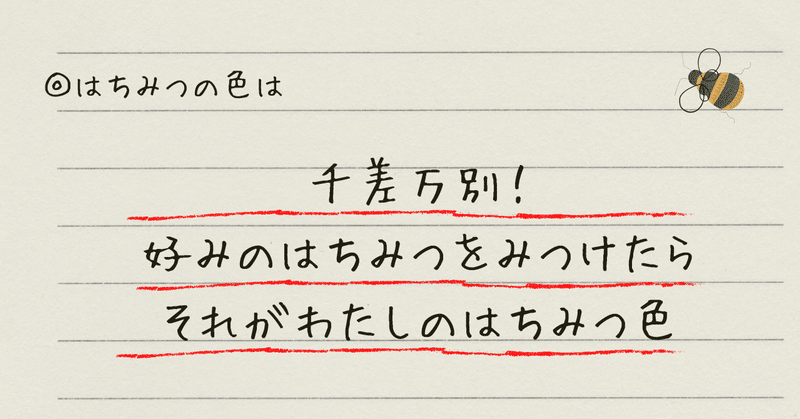 ◎はちみつの色は
千差万別!
好みのはちみつをみつけたら
それがわたしのはちみつ色